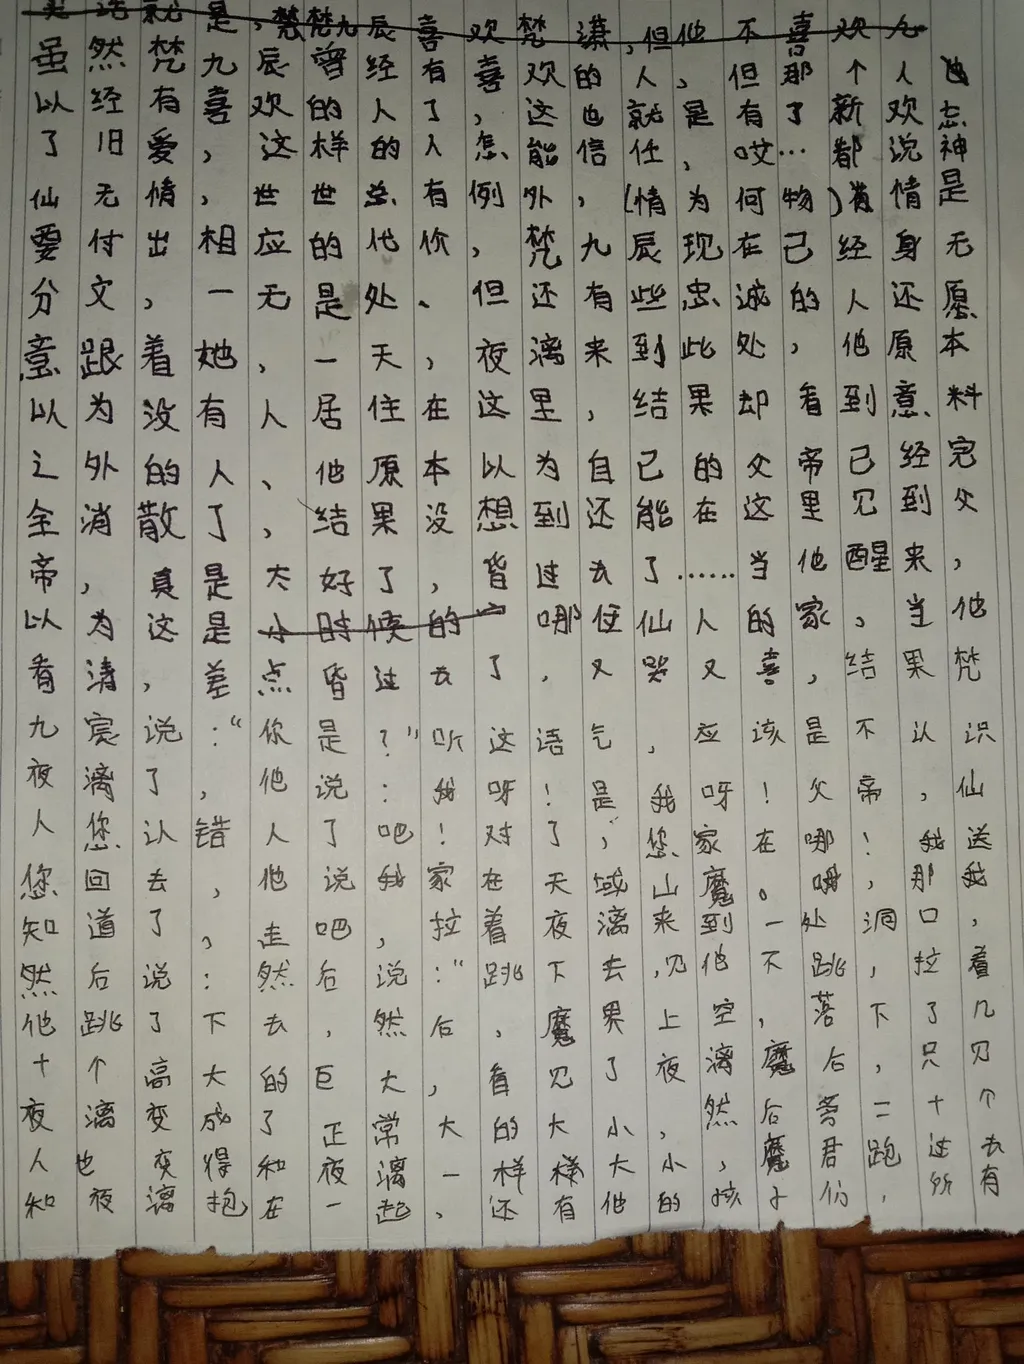 就是,梵九辰喜欢梵潇,但他不喜欢九
虽然梵九辰曾经有喜欢的人,但那个人也
以经有喜欢的人了,这也就是有了新欢忘
了旧爱,这样的人怎能信任,哎…都说神
仙无情,世世总有例外,(情为何物)有情是
要付出相应的代价,梵九辰现在己经身无
分文,一无是处、但还有些忠诚的人还愿
意跟着她,一天,夜漓来到此处,他原本
以为没有人居住在这里,结果却看到意料
之外的人、他原本以为自己的父帝己经完
全消散了,结果没想到还能在这里见到父
帝,真是太好了,昏过去了……当他醒来,
以为这是小时候的哪住仙人的家。当他
看清,差点昏过去了,又哭又喜,结果梵
九宸说:“你是?”听这语气,应该是不认识
夜漓了,他说:我呀!是我呀!父帝,仙
人您认错人了吧!对了,您家在哪!我送
您回去,他说我家在天域山魔。嗯,那我
知道了,走吧,拉着夜漓来到一处洞口,
然后说:然后说:“跳下去,见他不跳,拉着
他跳了下去,然后,魔界上空,落下了几
十个高大的巨大,看见了夜漓魔后,只见
夜漓变成了正常大的大小,然后等二十个
人也变得和夜漓一样样大小,魔君跑过去
和夜漓抱在一起、还有他的孩子们,所有